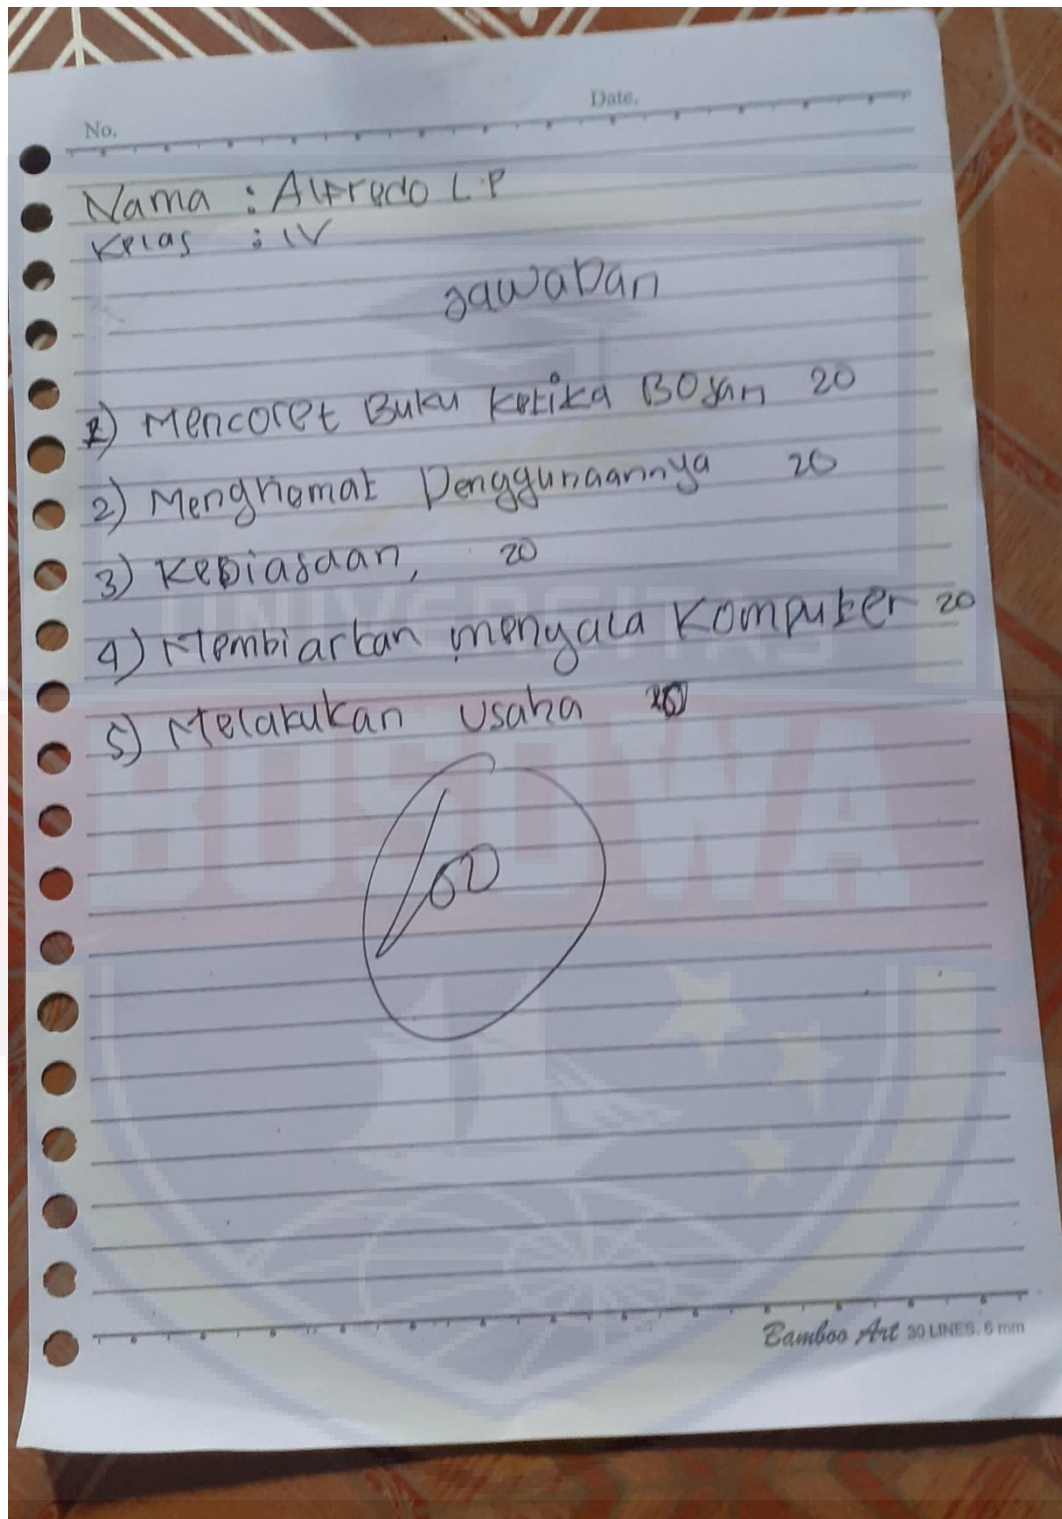 No.
Date.
Nama : Alfredo L.P
Kelas : IV
Jawaban
1) Mencoret Buku ketika BOsan 20
2) Menghemat Penggunaannya 20
3) Kebiasaan, 20
4) Membiarkan menyala Komputer 20
5) Melakukan Usaha 20
100
UNIVERSITAS
BOSOWA
Bamboo Art 30 LINES. 6 mm